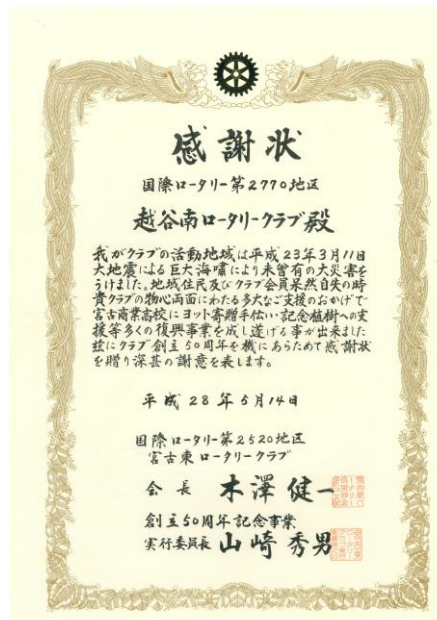 感謝状
国際ロータリー第2770地区
越谷南ロータリークラブ殿
我がクラブの活動地域は平成23年3月11日
大地震による巨大海嘯により未曾有の大災害を
うけました。地域住民及びクラブ会員呆然自失の時
貴クラブの物心両面にわたる多大なご支援のおかげで
宮古商業高校にヨット寄贈手伝い・記念植樹への支
援等多くの復興事業を成し遂げる事が出来ました
玆にクラブ創立50周年を機にあらためて感謝状
を贈り深甚の謝意を表します。
平成28年5月14日
国際ロータリー第2520地区
宮古東ロータリークラブ
会長 木澤健一
創立50周年記念事業
実行委員長 山崎秀男